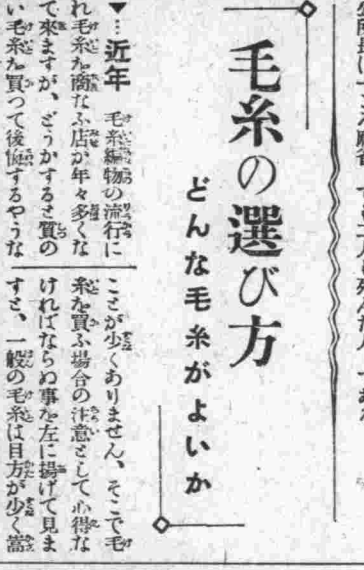 毛糸の選び方
どんな毛糸がよいか
▼…近年 毛糸編物の流行に
れ毛糸を商なふ店が年々多くな
て來ますが、どうかすると質の
い毛糸を買つて後悔するやうな
ことが少くありません、そこで毛
糸を買ふ場合の注意として心得な
ければならぬ事を左に揚げて見ま
すと、一般の毛糸は目方が少く當